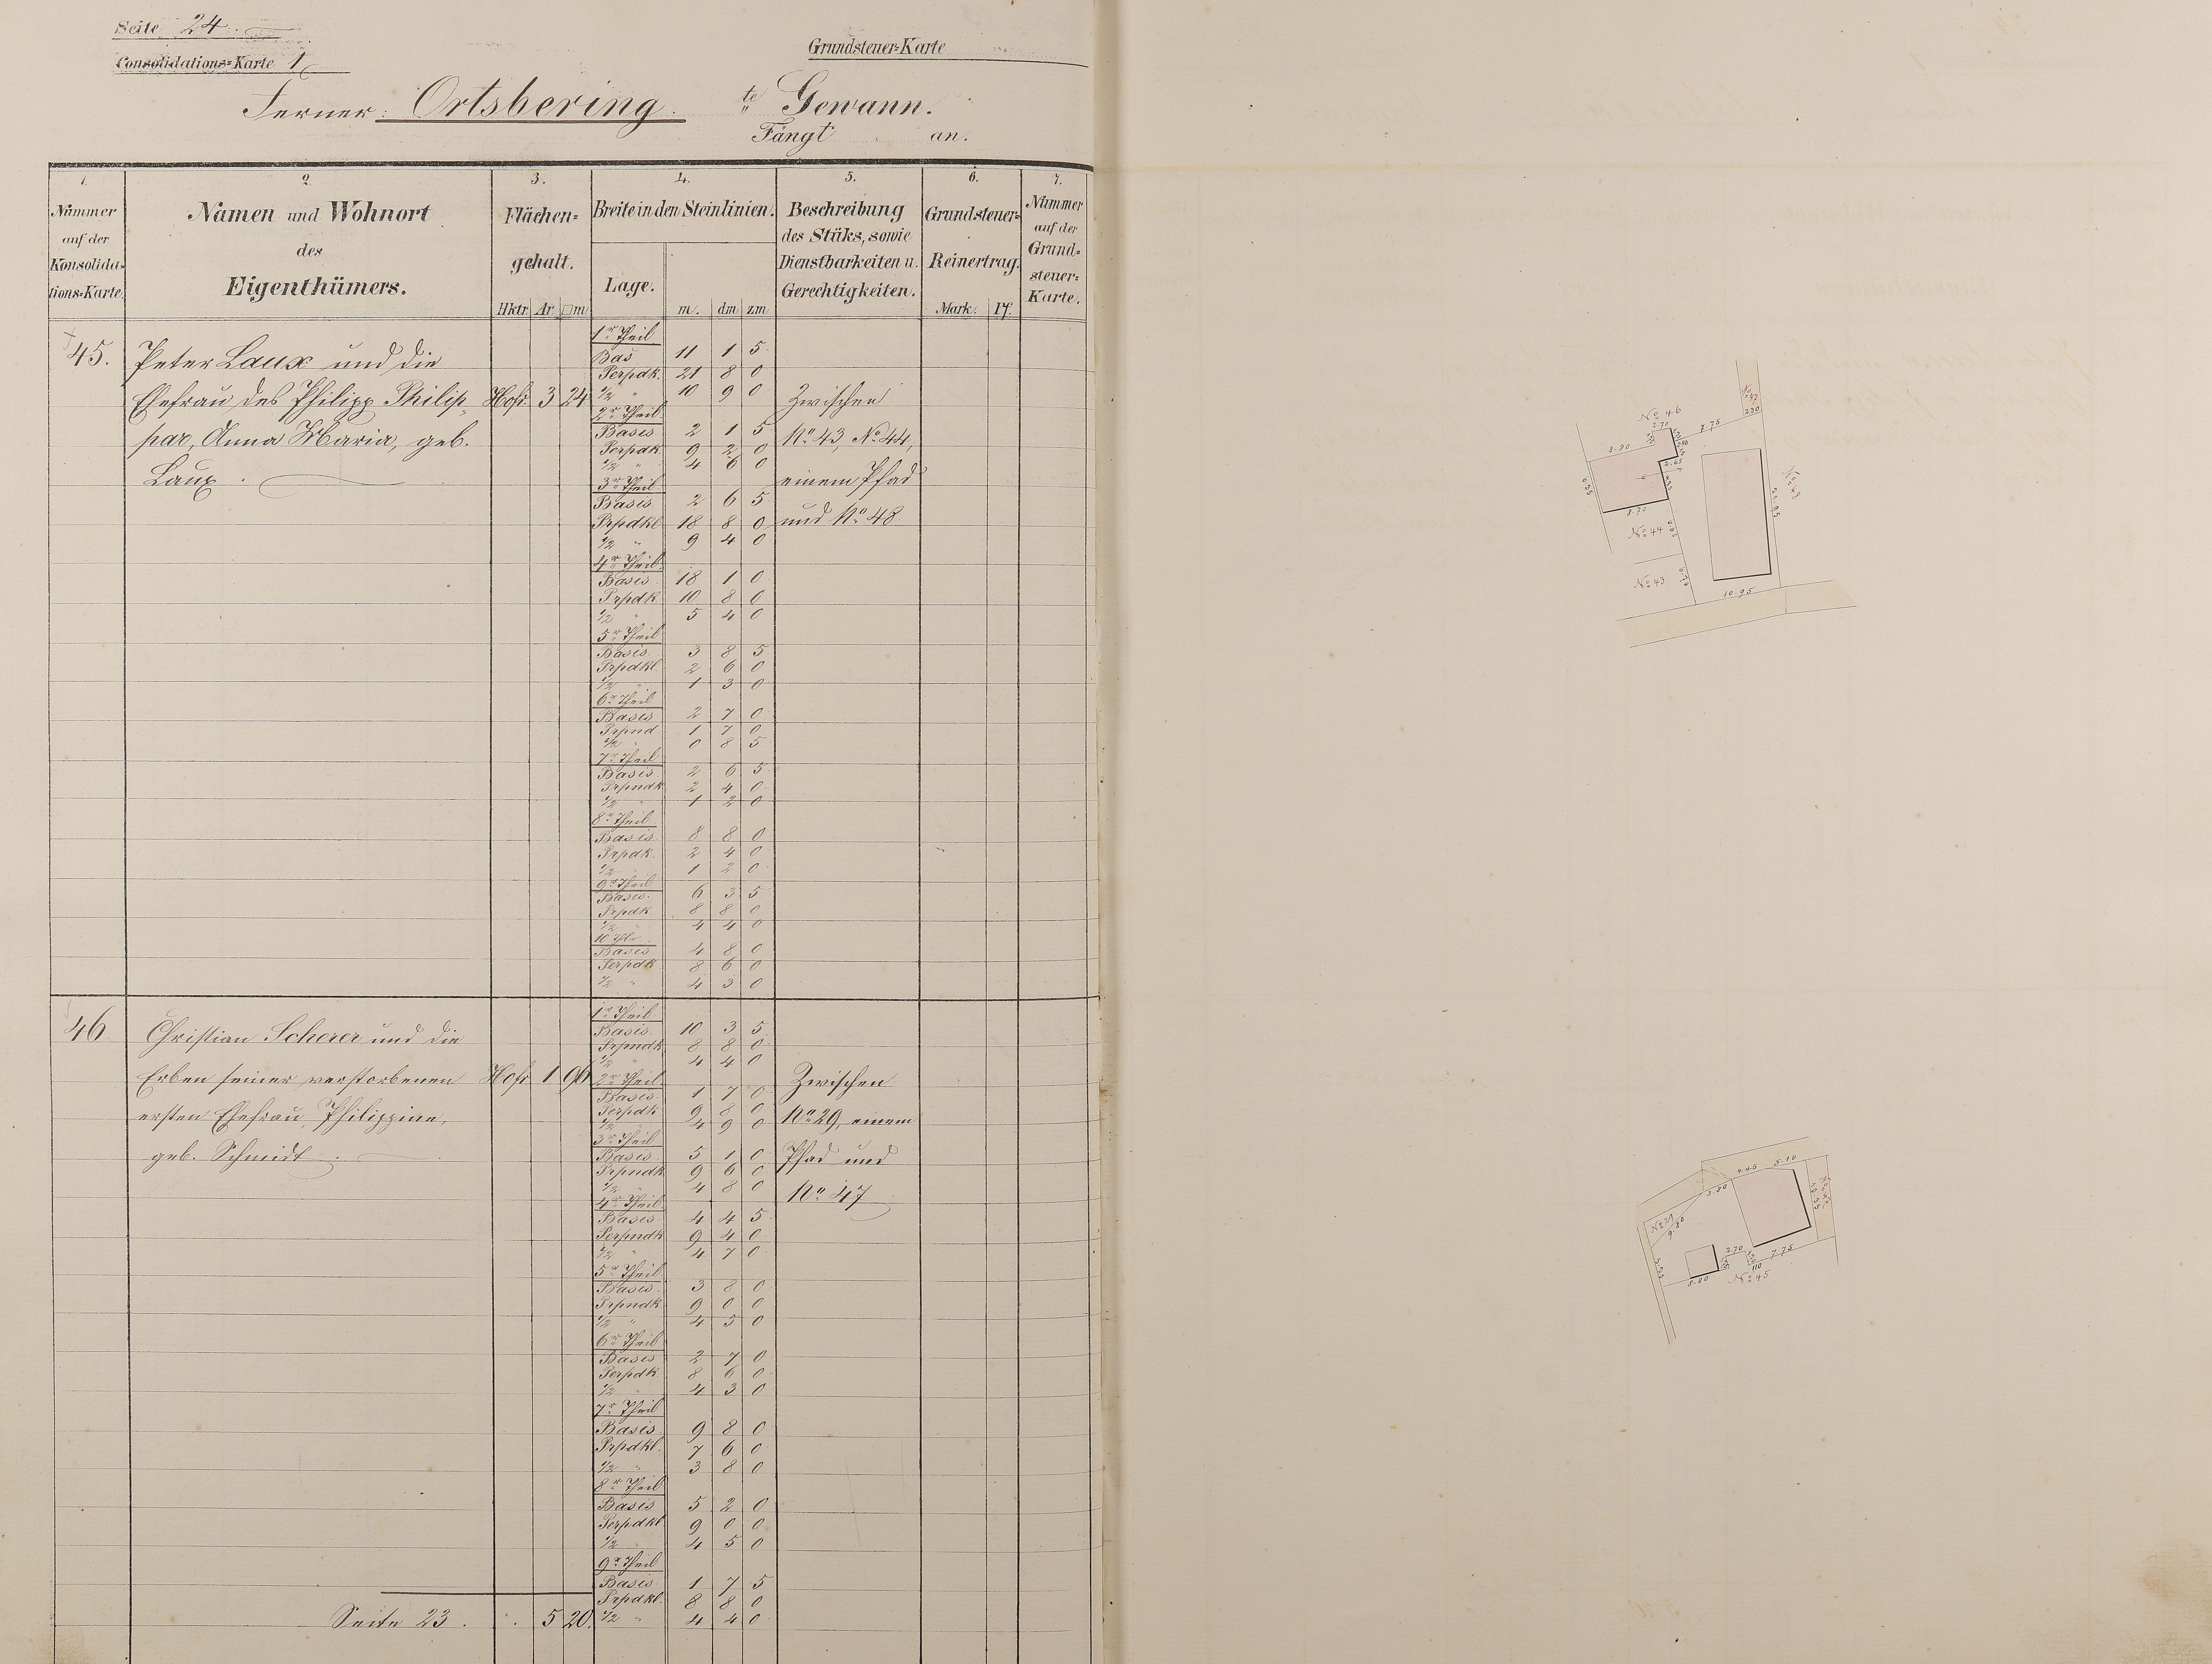 Seite 24.
Consolidations=Karte 1
Grundsteuer=Karte
Ferner: Ortsbering te Gewann.
Fängt an.
1. 2 3. 4. 5. 6. 7.
Nummer auf der Konsolida=tions=Karte.
Namen und Wohnort
des
Eigenthümers.
Flächen=
gehalt.
Hktr. Ar □m
Breite in den Steinlinien.
Lage.
m. dm zm
Beschreibung
des Stüks, sowie
Dienstbarkeiten u.
Gerechtigkeiten.
Grundsteuer=
Reinertrag.
Mark. Pf.
Nummer
auf der
Grund=
steuer=
Karte.
45.
Peter Laux und die
Ehefrau des Philipp Philip=
par, Anna Maria, geb.
Laux.
Hofr. 3 24
1r Theil
Bas 11 1 5
Perpdk. 21 8 0
1/2 " 10 9 0
2r Theil
Basis 2 1 5
Perpdk. 9 2 0
1/2 " 4 6 0
3r Theil
Basis 2 6 5
Prpdkl 18 8 0
1/2 " 9 4 0
4r Theil
Basis 18 1 0
Prpdk 10 8 0
1/2 " 5 4 0
5r Theil
Basis 3 8 5
Prpdkl. 2 6 0
1/2 " 1 3 0
6r Theil
Basis 2 7 0
Prpnd 1 7 0
1/2 " 0 8 5
7r Theil
Basis 2 6 5
Prpndk 2 4 0
1/2 " 1 2 0
8r Theil
Basis 8 8 0
Prpdk 2 4 0
1/2 " 1 2 0
9r Theil
Basis. 6 3 5
Prpdk 8 8 0
1/2 " 4 4 0
10 Thl
Basis 4 8 0
Perpdk 8 6 0
1/2 " 4 3 0
Zwischen
No 43, No 44,
einem Pfad
und No 48
46
Christian Scherer und die
Erben seiner verstorbenen
ersten Ehefrau, Philippine,
geb. Schmidt.
Hofr 1 96
1r Theil
Basis. 10 3 5
Prpndk 8 8 0
1/2 " 4 4 0
2r Theil
Basis. 1 7 0
Perpdk 9 8 0
1/2 " 4 9 0
3r Theil
Basis 5 1 0
Prpndk 9 6 0
1/2 " 4 8 0
4r Theil
Basis 4 4 5
Perpndk 9 4 0
1/2 " 4 7 0
5r Theil
Basis 3 8 0
Prpndk 9 0 0
1/2 " 4 5 0
6r Theil
Basis 2 7 0
Perpdk 8 6 0
1/2 " 4 3 0
7r Theil
Basis 9 8 0
Prpdkl. 7 6 0
1/2 " 3 8 0
8r Theil
Basis 5 2 0
Perpdkl 9 0 0
1/2 " 4 5 0
9r Theil
Basis 1 7 5
Prpdkl. 8 8 0
1/2 " 4 4 0
Zwischen
No 29, einem
Pfad und
No 47
Seite 23. 5 20.
No 47
2.30
No 46
2.70
7.75
8.80
2.65
No 48
21.95
8.70
No 44
No 43
10.95
5.10
2.45
3.80
No 29
9.80
2.70
7.75
110
8.80
No 45